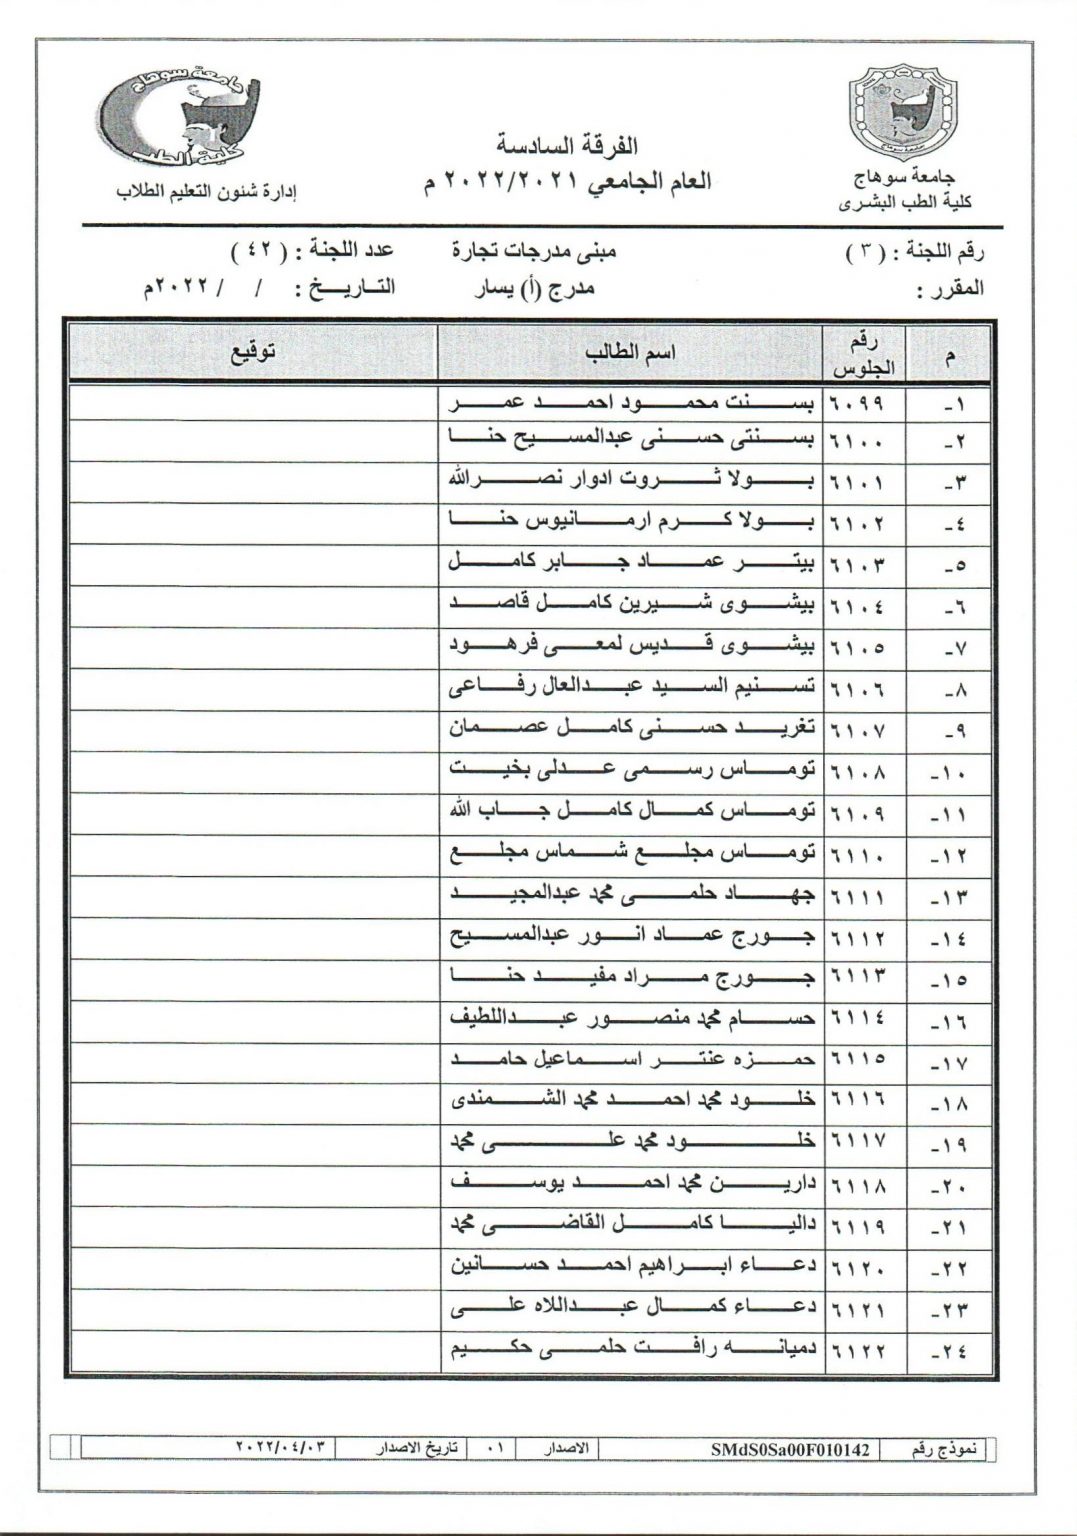 جامعة سوهاج
كلية الطب
إدارة شئون التعليم الطلاب
الفرقة السادسة
العام الجامعي ٢٠٢٢/٢٠٢١ م
جامعة سوهاج
كلية الطب البشرى
رقم اللجنة : ( ٣ ) مبنى مدرجات تجارة عدد اللجنة : ( ٤٢ )
المقرر : مدرج (أ) يسار التاريخ : / / ٢٠٢٢م
م رقم الجلوس اسم الطالب توقيع
١- ٦٠٩٩ بسنت محمود احمد عمر
٢- ٦١٠٠ بسنتى حسنى عبدالمسيح حنا
٣- ٦١٠١ بولا ثروت ادوار نصرالله
٤- ٦١٠٢ بولا كرم ارمانيوس حنا
٥- ٦١٠٣ بيتر عماد جابر كامل
٦- ٦١٠٤ بيشوى شيرين كامل قاصد
٧- ٦١٠٥ بيشوى قديس لمعى فرهود
٨- ٦١٠٦ تسنيم السيد عبدالعال رفاعى
٩- ٦١٠٧ تغريد حسنى كامل عصمان
١٠- ٦١٠٨ توماس رسمى عدلى بخيت
١١- ٦١٠٩ توماس كمال كامل جاب الله
١٢- ٦١١٠ توماس مجلع شماس مجلع
١٣- ٦١١١ جهاد حلمى محمد عبدالمجيد
١٤- ٦١١٢ جورج عماد انور عبدالمسيح
١٥- ٦١١٣ جورج مراد مفيد حنا
١٦- ٦١١٤ حسام محمد منصور عبداللطيف
١٧- ٦١١٥ حمزه عنتر اسماعيل حامد
١٨- ٦١١٦ خلود محمد احمد محمد الشمندى
١٩- ٦١١٧ خلود محمد على محمد
٢٠- ٦١١٨ دارين محمد احمد يوسف
٢١- ٦١١٩ داليا كامل القاضى محمد
٢٢- ٦١٢٠ دعاء ابراهيم احمد حسانين
٢٣- ٦١٢١ دعاء كمال عبداللاه على
٢٤- ٦١٢٢ دميانه رافت حلمى حكيم
نموذج رقم SMdS0Sa00F010142 الاصدار ٠١ تاريخ الاصدار ٢٠٢٢/٠٤/٠٣